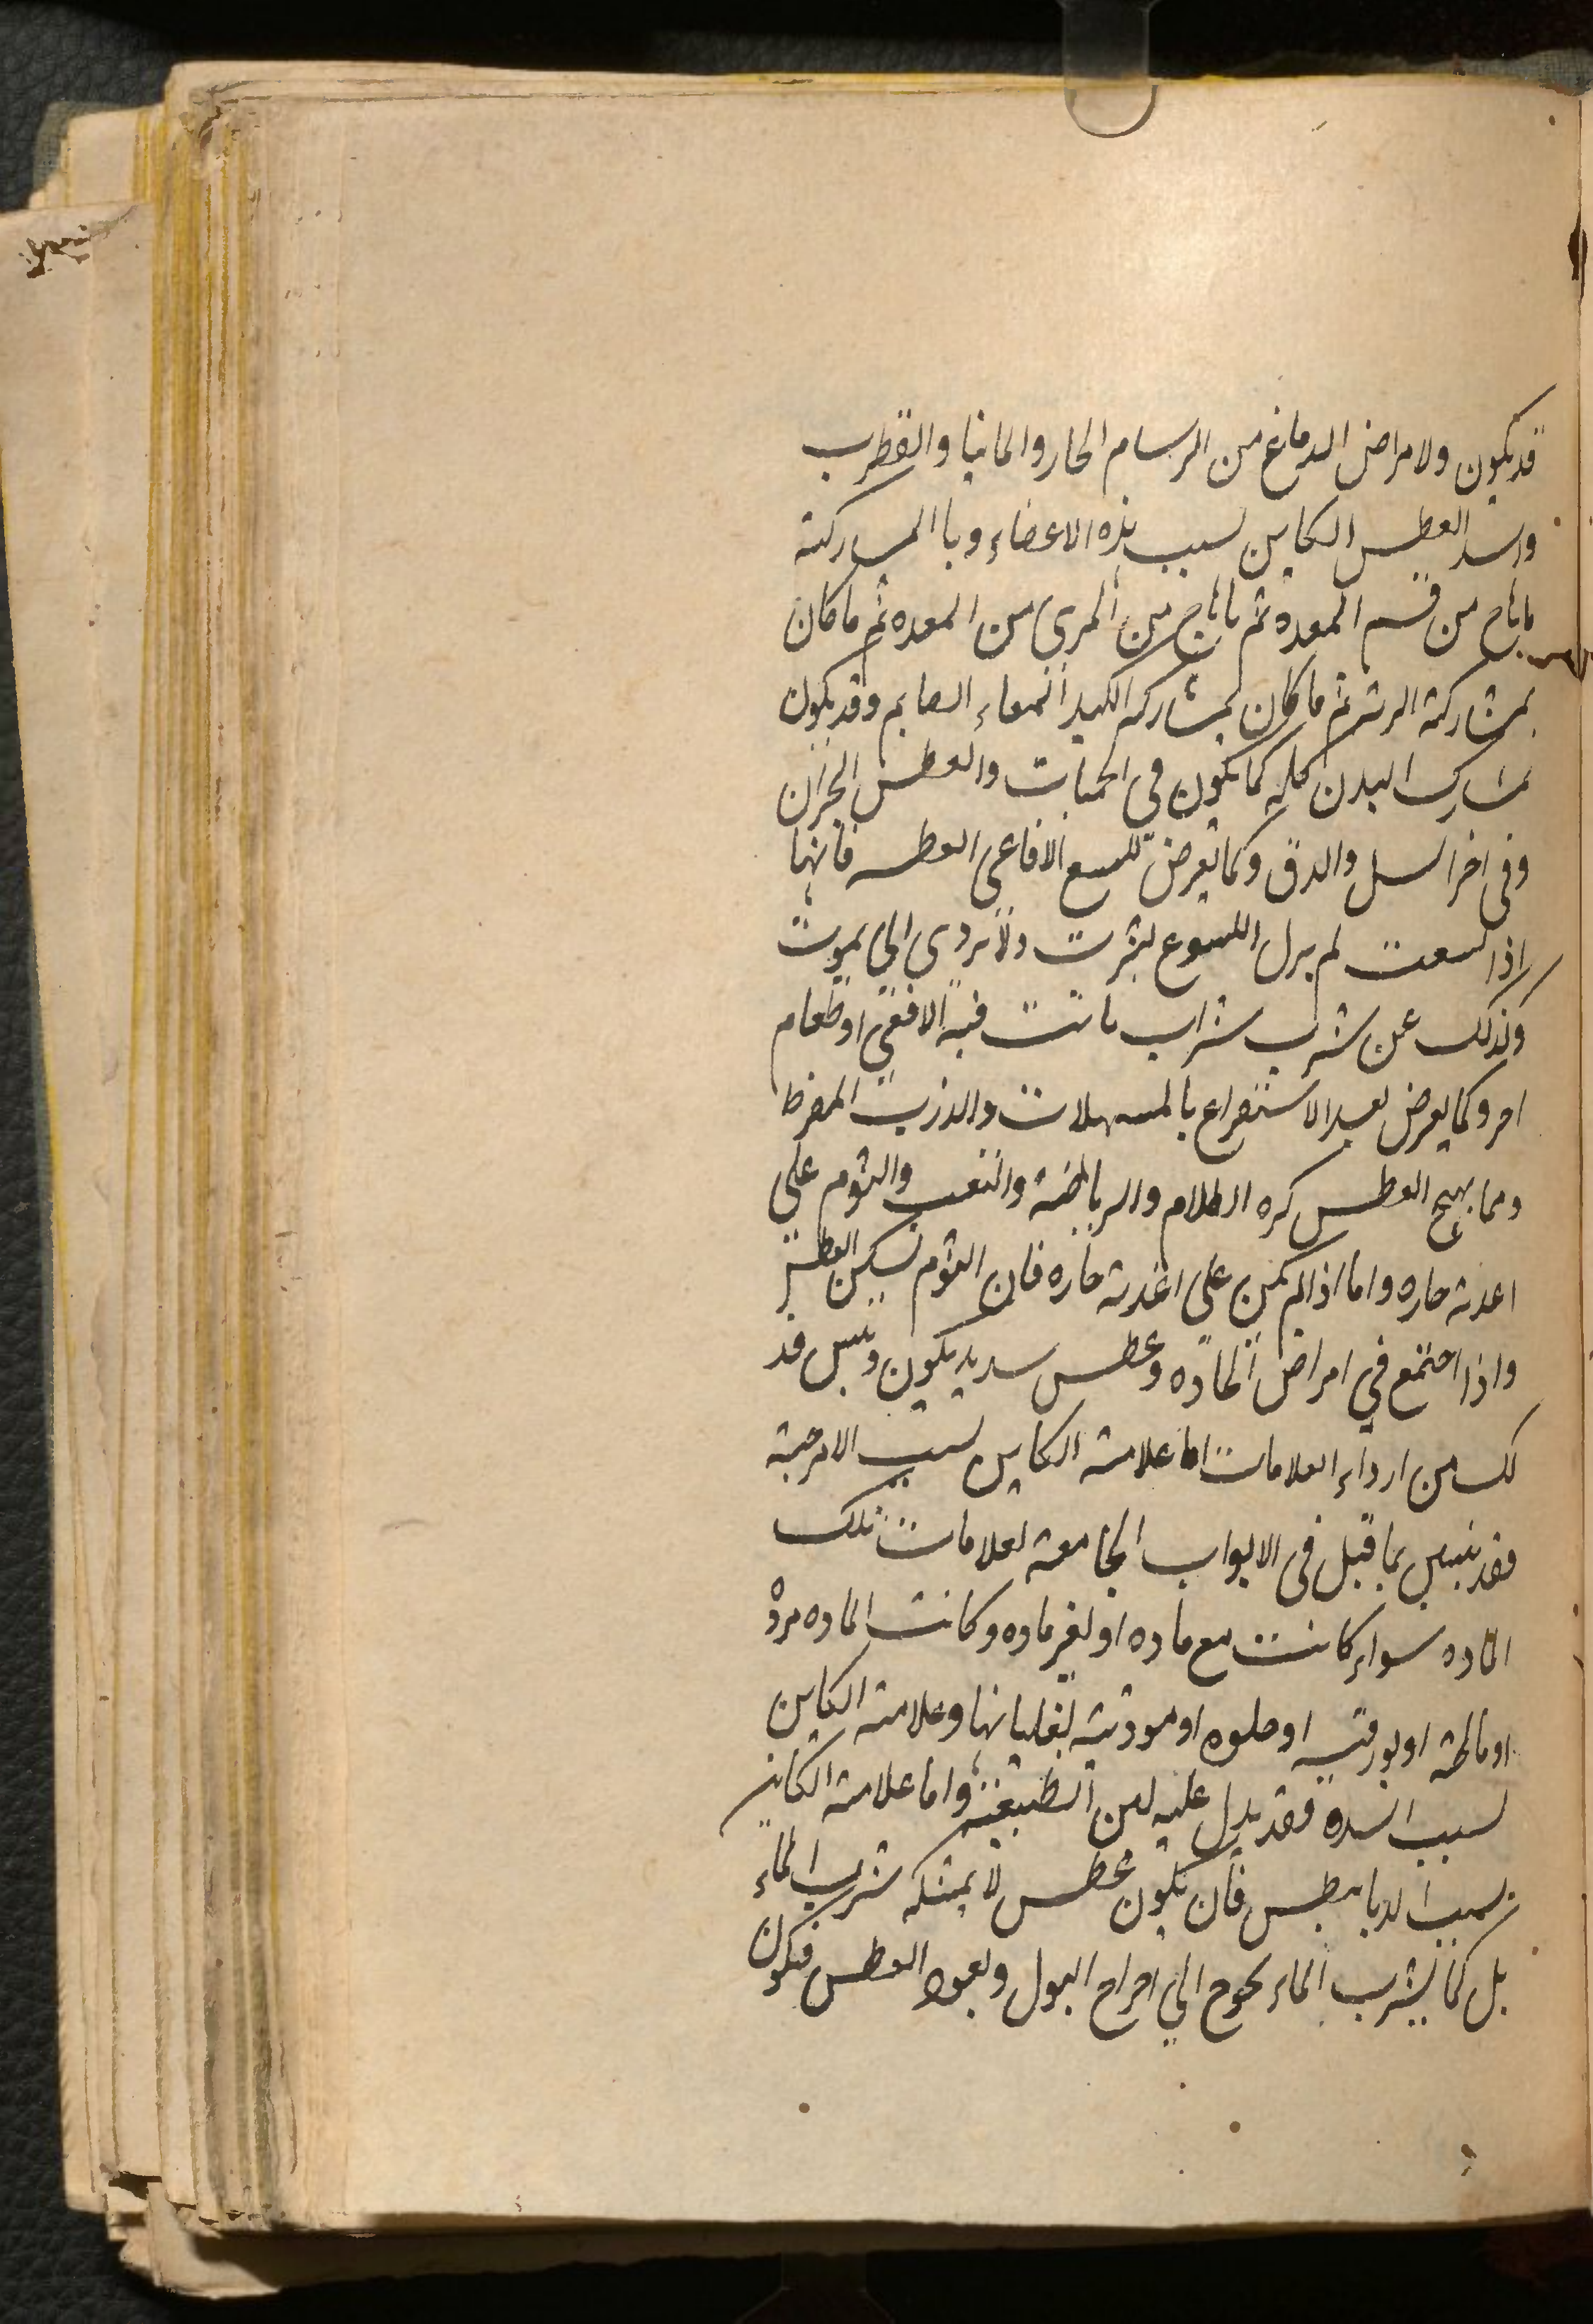 قد يكون ولامراض الدماغ من السرسام الحار والمانيا والقطرب
واشد العطس الكاين لسبب هذه الاعضاء وبا المشاركة
ماهاج من فم المعدة ثم ماهاج من المرى من المعده ثم ما كان
بمشاركة الريه ثم ما كان بمشاركه الكبد المعاء الصايم وقد يكون
بمشاركه البدن كله كما يكون فى الحميات والعطس البحران
وفى اخر السل والدق وكما تعرض للسع الافاعى العطسه فانها
اذا لسعت لم يزل اللسوع يشرب ولا يروى الى يموت
وكذلك عن شرب شراب ماتت فيه الافعى او طعام
اخر وكما يعرض بعد الاستفراغ بالمسهلات والذرب المفرط
ومما يهيج العطس كثره الطلام والرياضة والتعب والنوم على
اغدية حاره واما اذا لم يكن على اغدية حاره فان النوم يسكن العطش
واذا اجتمع في امراض الحاده وعطس سديد يكون ويبس فذ
لك من ارداء العلامات اما علامة الكاين لسبب الامزجة
فقد يتبين بما قيل فى الابواب الجامعة لعلامات تلك
الماده سواء كانت مع ماده او لغير ماده وكانت الماده مره
او مالحة او بورقيه او حلوه او موذية بغليانها وعلامة الكاين
لسبب السده فقد يدل عليه لين الطبيعة واما علامة الكاين
لسبب الديابيطس فان يكون عطس لا يمسكه شرب الماء
بل كما يشرب الماء يحوج الي اخراج البول ويعود العطس فيكون